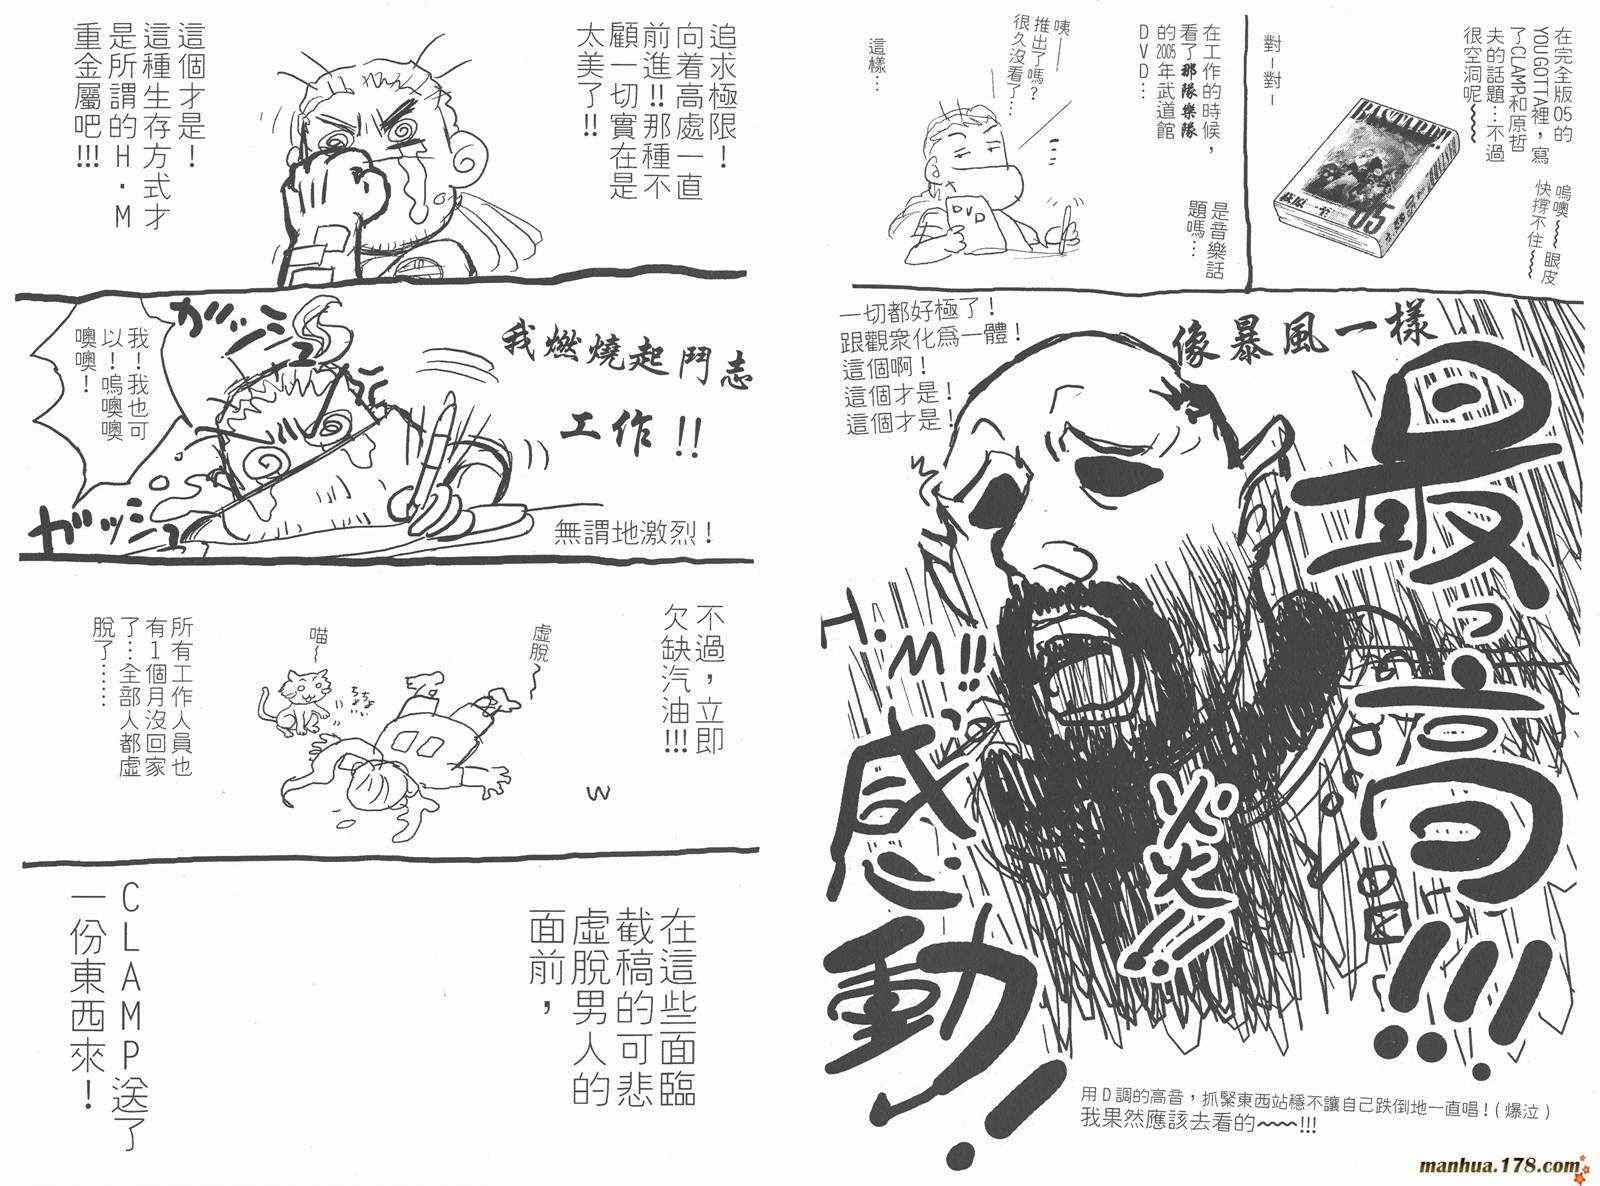 在完全版05的
YOUGOTTA裡，寫
了CLAMP和原哲
夫的話題…不過
很空洞呢~~~
對－對－
BASTARD!!
05
嗚噢~~~眼皮
快撐不住~~~
在工作的時候，
看了那隊樂隊
的2005年武道館
DVD…
咦——
推出了嗎？
很久沒看了…
這樣…
DVD
是音樂話
題嗎…
像暴風一樣
最高!!!
一切都好極了！
跟觀衆化爲一體！
這個啊！
這個才是！
這個才是！
H.M!!
感動!!
炎!!
用D調的高音，抓緊東西站穩不讓自己跌倒地一直唱！(爆泣)
我果然應該去看的~~~!!!
追求極限！
向着高處一直
前進!!那種不
顧一切實在是
太美了!!
這個才是！
這種生存方式才
是所謂的H．M
重金屬吧!!!
ガッシュ
我燃燒起鬥志
工作!!
我！我也可
以！嗚噢噢
噢噢！
ガッシュ
無謂地激烈！
不過，立即
欠缺汽油!!!
虛脫~
喵~
所有工作人員也
有1個月沒回家
了…全部人都虛
脫了……
在這些面臨
截稿的可悲
虛脫男人的
面前，
CLAMP送了
一份東西來！
manhua.178.com